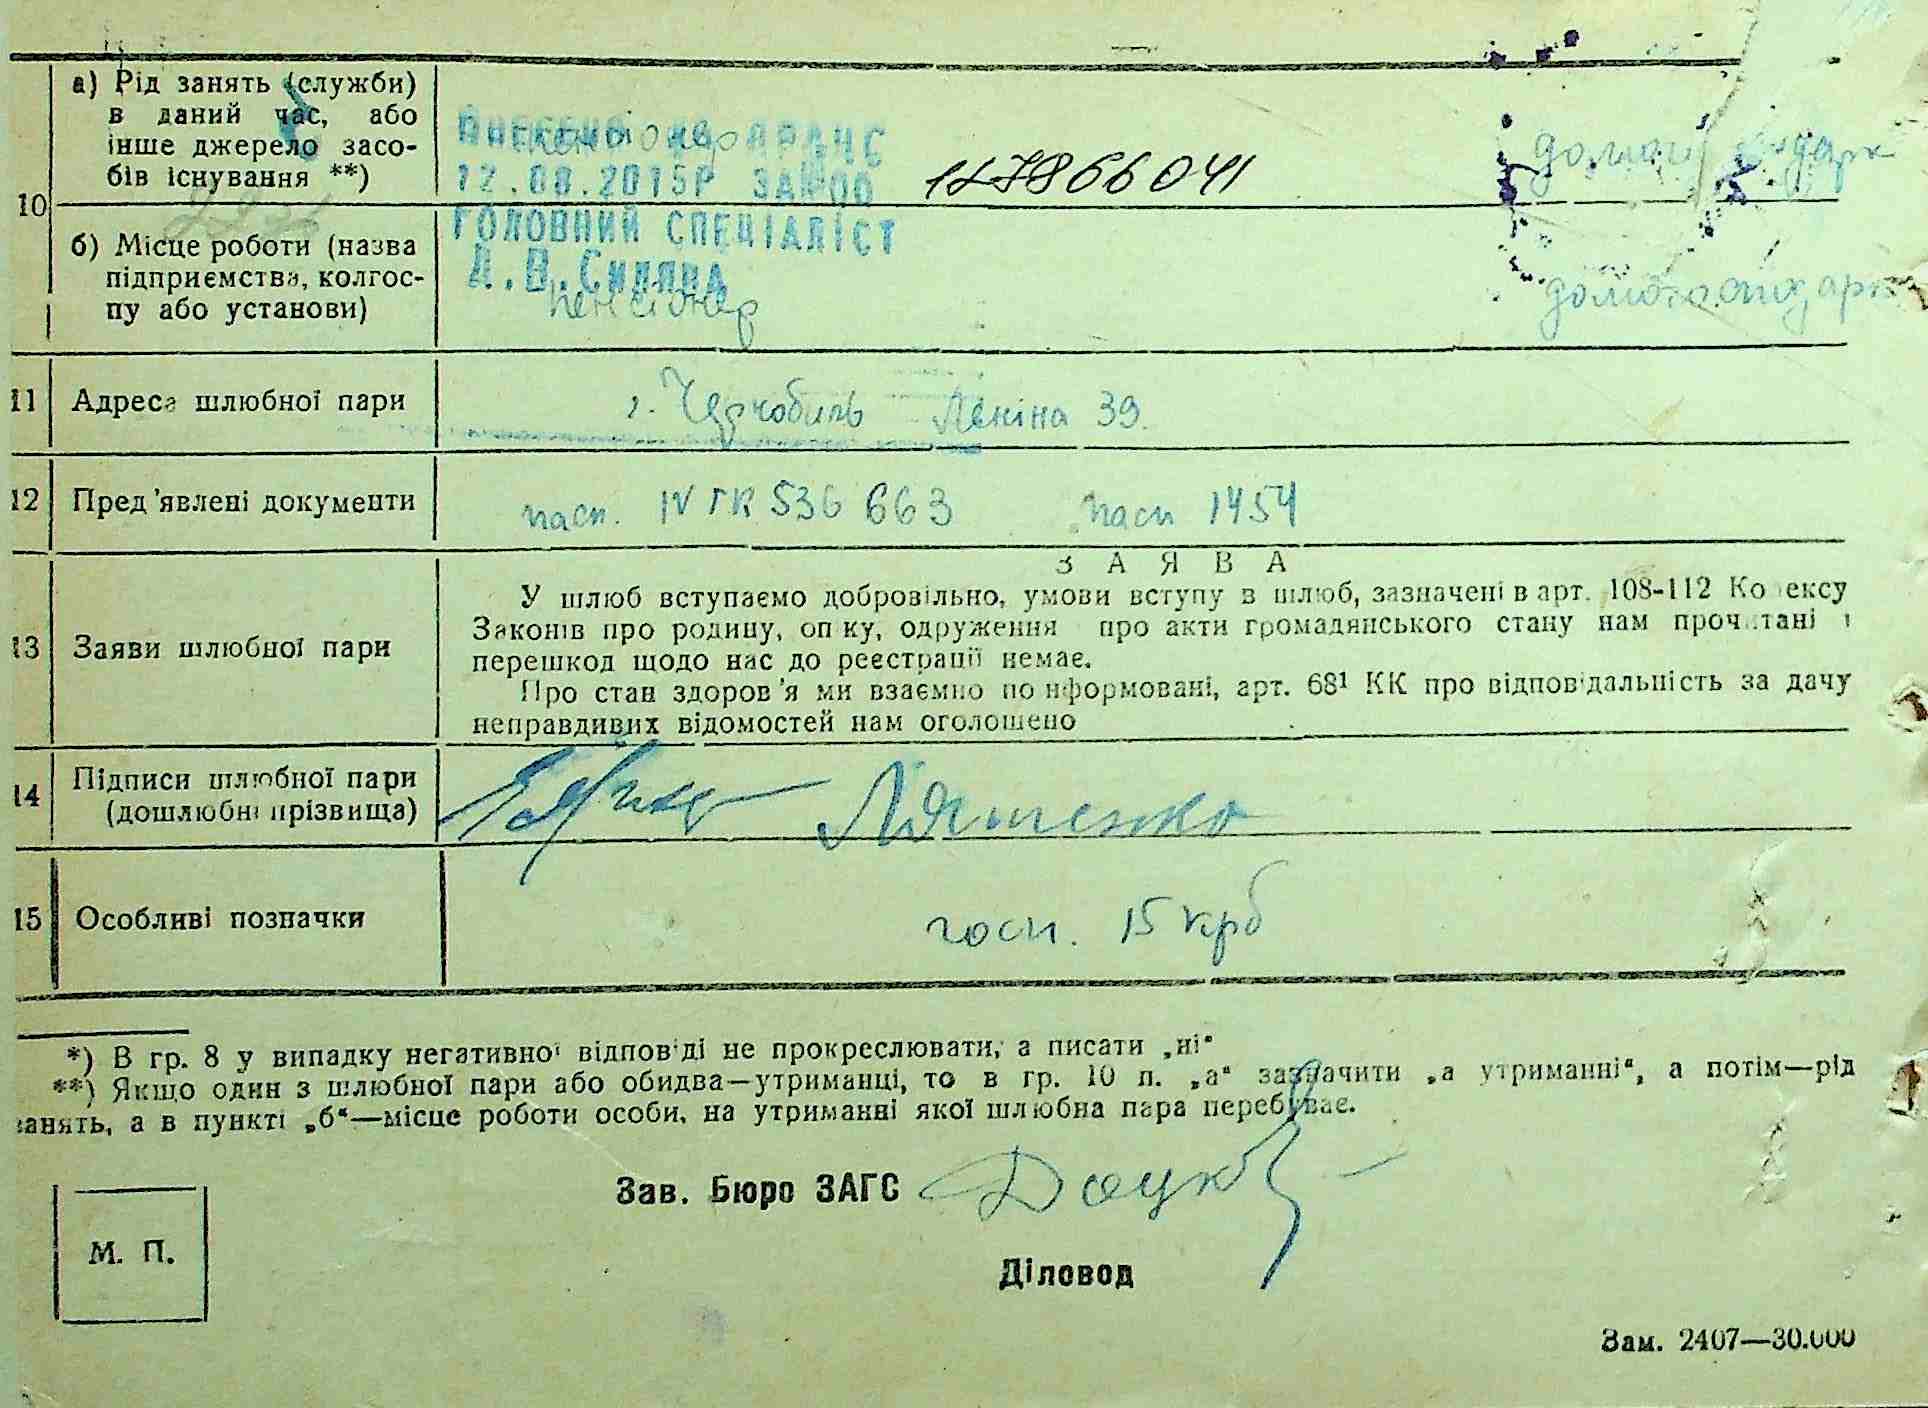 10
а) Рід занять (служби)
в даний час, або
інше джерело засо-
бів існування **)
пенсіонер
ВНЕСЕНО ДО ДРАЦС
12.08.2015Р ЗА №00
ГОЛОВНИЙ СПЕЦІАЛІСТ
домогосподарк
б) Місце роботи (назва
підприємства, колгос-
пу або установи)
пенсіонер
домогосподарк
11 Адреса шлюбної пари
г. Чернобиль Леніна 39.
12 Пред'явлені документи
пасп. IV ГК 536 663 пасп 1454
13 Заяви шлюбної пари
ЗАЯВА
У шлюб вступаємо добровільно, умови вступу в шлюб, зазначені в арт. 108-112 Кодексу
Законів про родину, опіку, одруження про акти громадянського стану нам прочитані і
перешкод щодо нас до реєстрації немає.
Про стан здоров'я ми взаємно поінформовані, арт. 68¹ КК про відповідальність за дачу
неправдивих відомостей нам оголошено
14 Підписи шлюбної пари
(дошлюбні прізвища)
Ляшенко
15 Особливі позначки
госп. 15 крб
*) В гр. 8 у випадку негативної відповіді не прокреслювати, а писати „ні“
**) Якщо один з шлюбної пари або обидва—утриманці, то в гр. 10 п. „а“ зазначити „а утриманні“, а потім—рід
занять, а в пункті „б“—місце роботи особи, на утриманні якої шлюбна пара перебуває.
Зав. Бюро ЗАГС
Діловод
М. П.
Зам. 2407—30.000